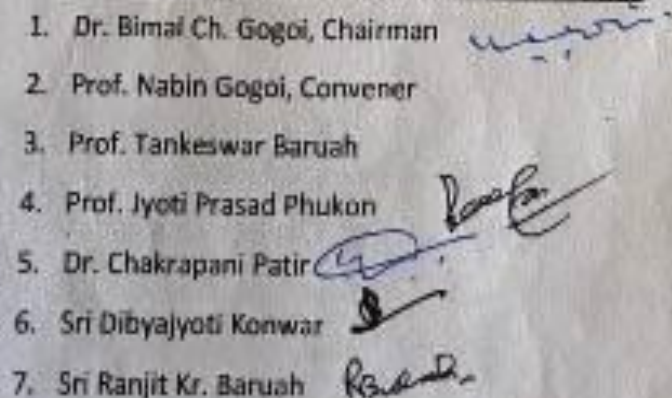 1. Dr. Bimal Ch. Gogoi, Chairman
2. Prof. Nabin Gogoi, Convener
3. Prof. Tankeswar Baruah
4. Prof. Jyoti Prasad Phukon
5. Dr. Chakrapani Patir
6. Sri Dibyajyoti Konwar
7. Sri Ranjit Kr. Baruah